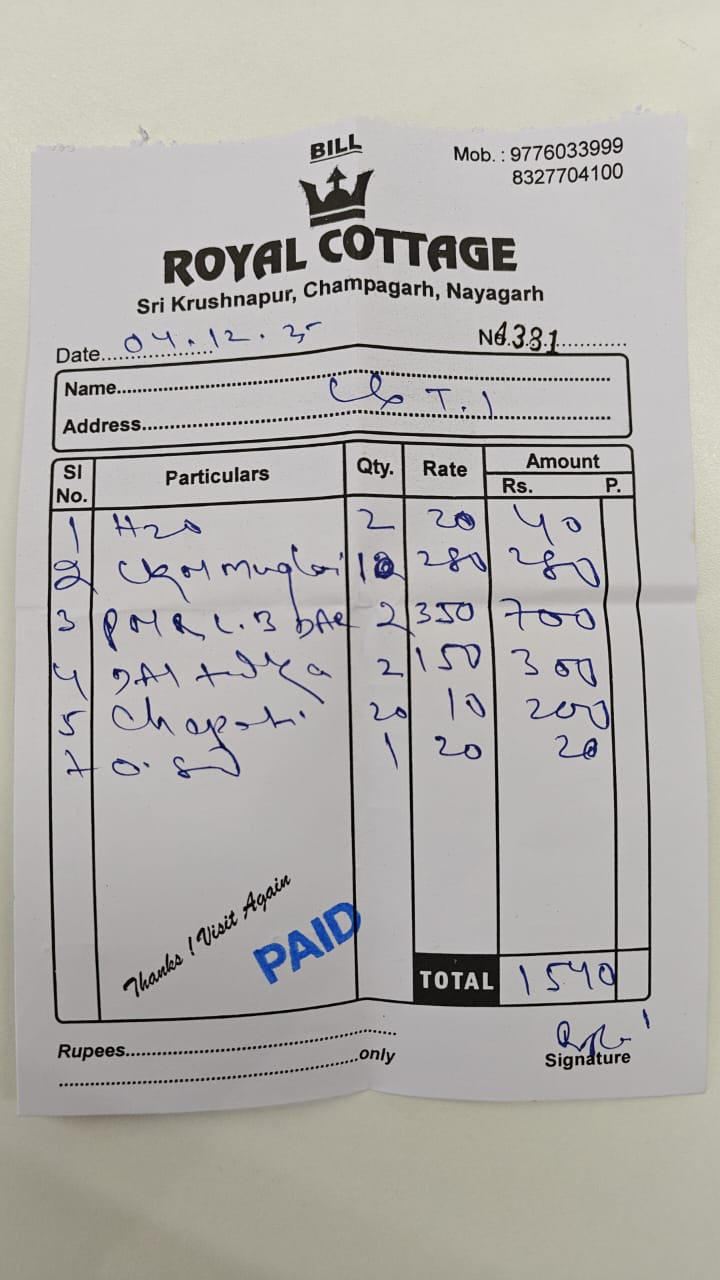 BILL
Mob. : 9776033999
8327704100
ROYAL COTTAGE
Sri Krushnapur, Champagarh, Nayagarh
Date 04.12.25
No. 4381
Name
T.1
Address
Sl No. Particulars Qty. Rate Amount
Rs. P.
1 H20 2 20 40
2 muglai 1 280 280
3 2 350 700
4 2 150 300
5 Chapati 20 10 200
7 1 20 20
Thanks ! Visit Again
PAID
TOTAL 1540
Rupees
only
Signature